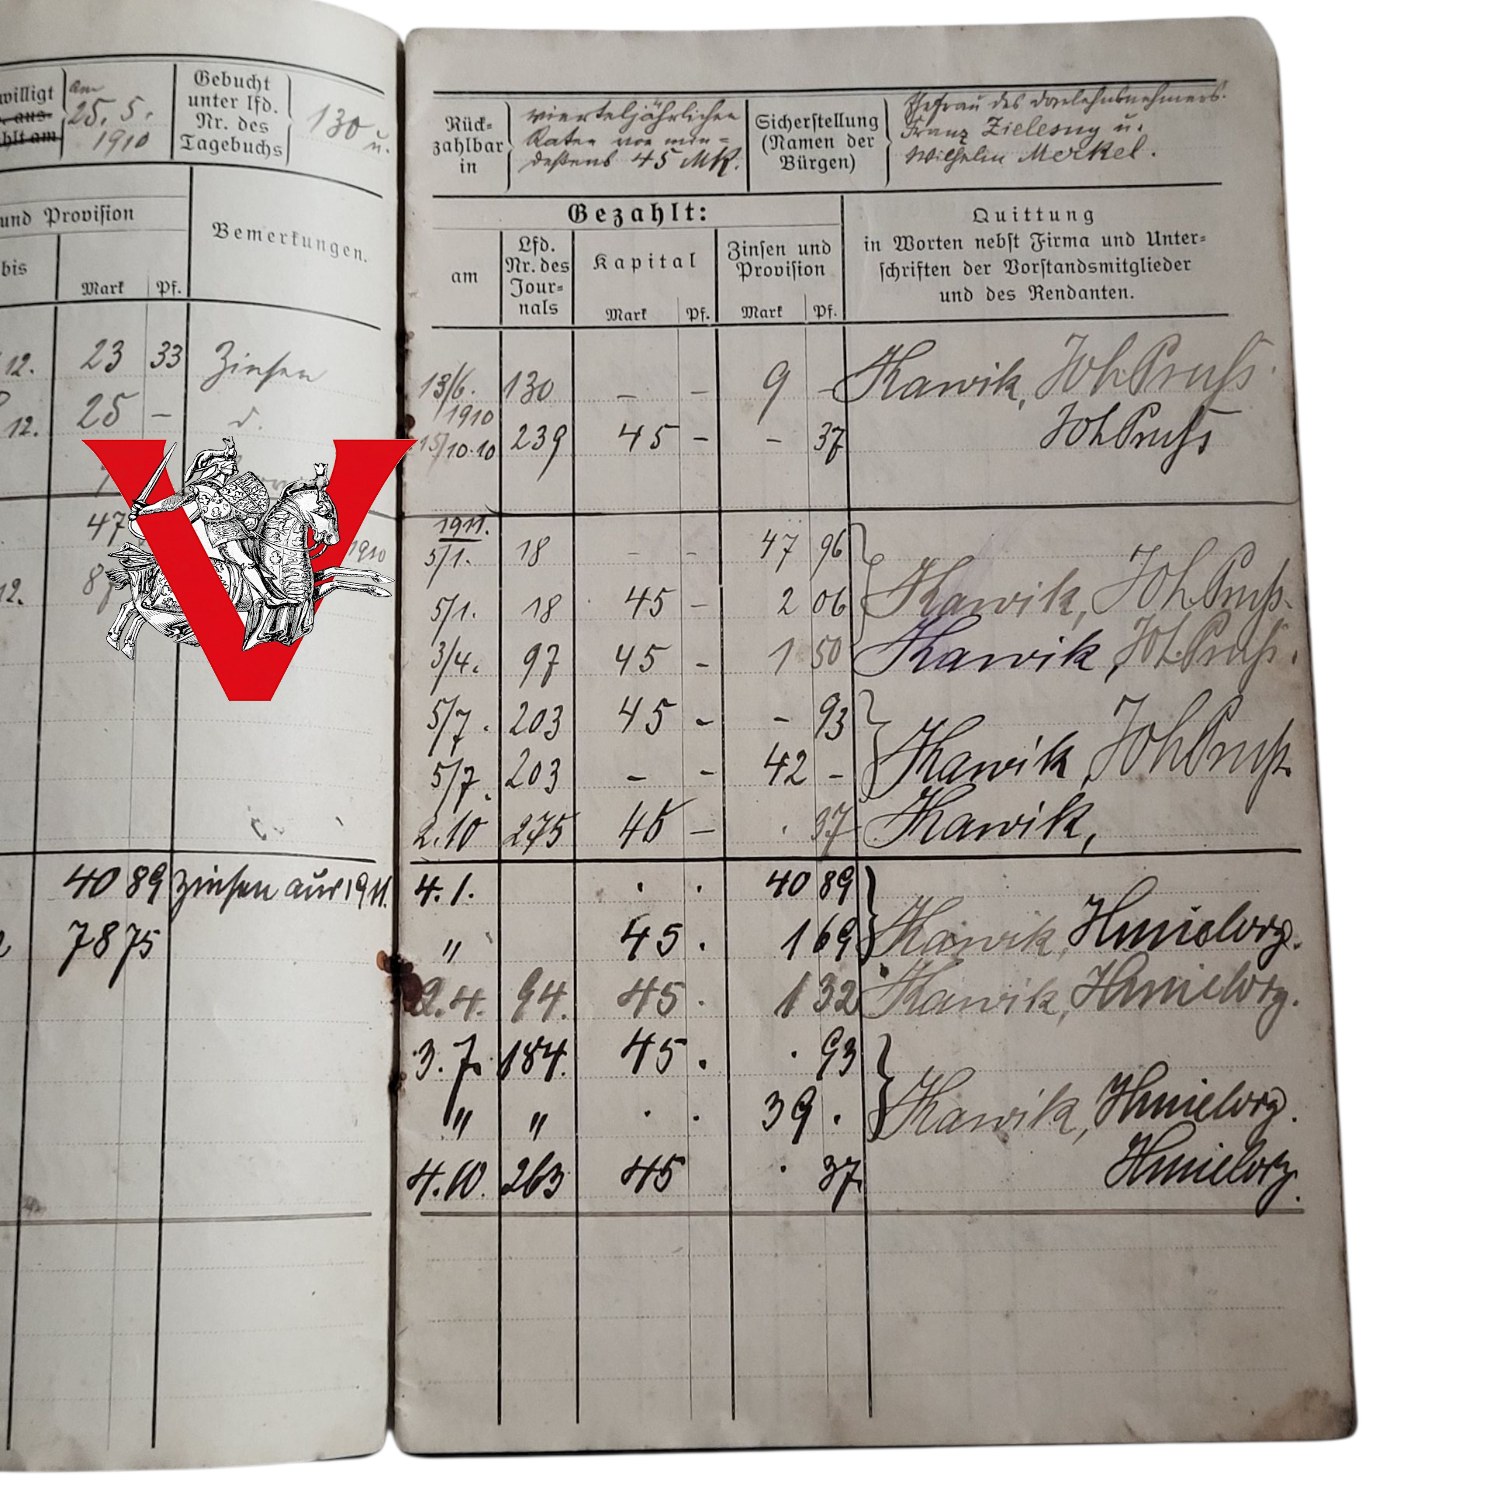 willigt
aus-
hlt am
am
25. 5.
1910
Gebucht
unter lfd.
Nr. des
Tagebuchs
130 u.
und Provision
Bemerkungen.
bis
Mark Pf.
12. 23 33 Zinsen
12. 25 — d.
47 1910
12.
40 89 Zinsen aus 1911.
78 75
V
Rück-
zahlbar
in
vierteljährlichen
Raten von min-
destens 45 Mk.
Sicherstellung
(Namen der
Bürgen)
Ehefrau des Darlehnsnehmers.
Franz Zielesny u.
Wilhelm Merkel.
Gezahlt:
am
Lfd.
Nr. des
Jour-
nals
Kapital
Mark Pf.
Zinsen und
Provision
Mark Pf.
Quittung
in Worten nebst Firma und Unter-
schriften der Vorstandsmitglieder
und des Rendanten.
13/6. 1910 130 — — 9 — Kawik, Joh Pruss.
15/10.10 239 45 — — 37 Joh Pruss
1911.
5/1. 18 — — 47 96
5/1. 18 45 — 2 06 Kawik, Joh Pruss.
3/4. 97 45 — 1 50 Kawik, Joh Pruss.
5/7. 203 45 — — 93
5/7. 203 — — 42 — Kawik Joh Pruss.
2.10 275 45 — . 37 Kawik,
4.1. . . 40 89
" 45 . 1 69 Kawik, Hmielorz.
2.4. 94. 45 . 1 32 Kawik, Hmielorz.
3.7. 184. 45 . . 93
" " . . 39 . Kawik, Hmielorz.
4.10. 263 45 . 37. Hmielorz.